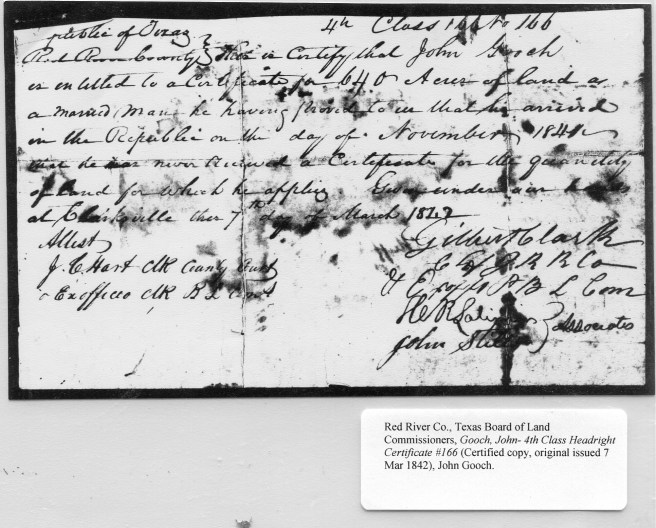 public of Texas
4th Class No 166
Red River County This is Certify that John Gooch
is entitled to a Certificate for 640 Acres of land as
a married man he having proved to us that he arrived
in the Republic on the day of November 1841
that he has never Received a Certificate for the quantity
of land for which he applies. Given under our hands
at Clarksville this 7th day of March 1842
Attest
Gilbert Clark
J. C. Hart Clk County Court
C J R R Co
& Exofficio Clk B L Com
& Exoffo P B L Com
John
Associates
Red River Co., Texas Board of Land
Commissioners, Gooch, John- 4th Class Headright
Certificate #166 (Certified copy, original issued 7
Mar 1842), John Gooch.